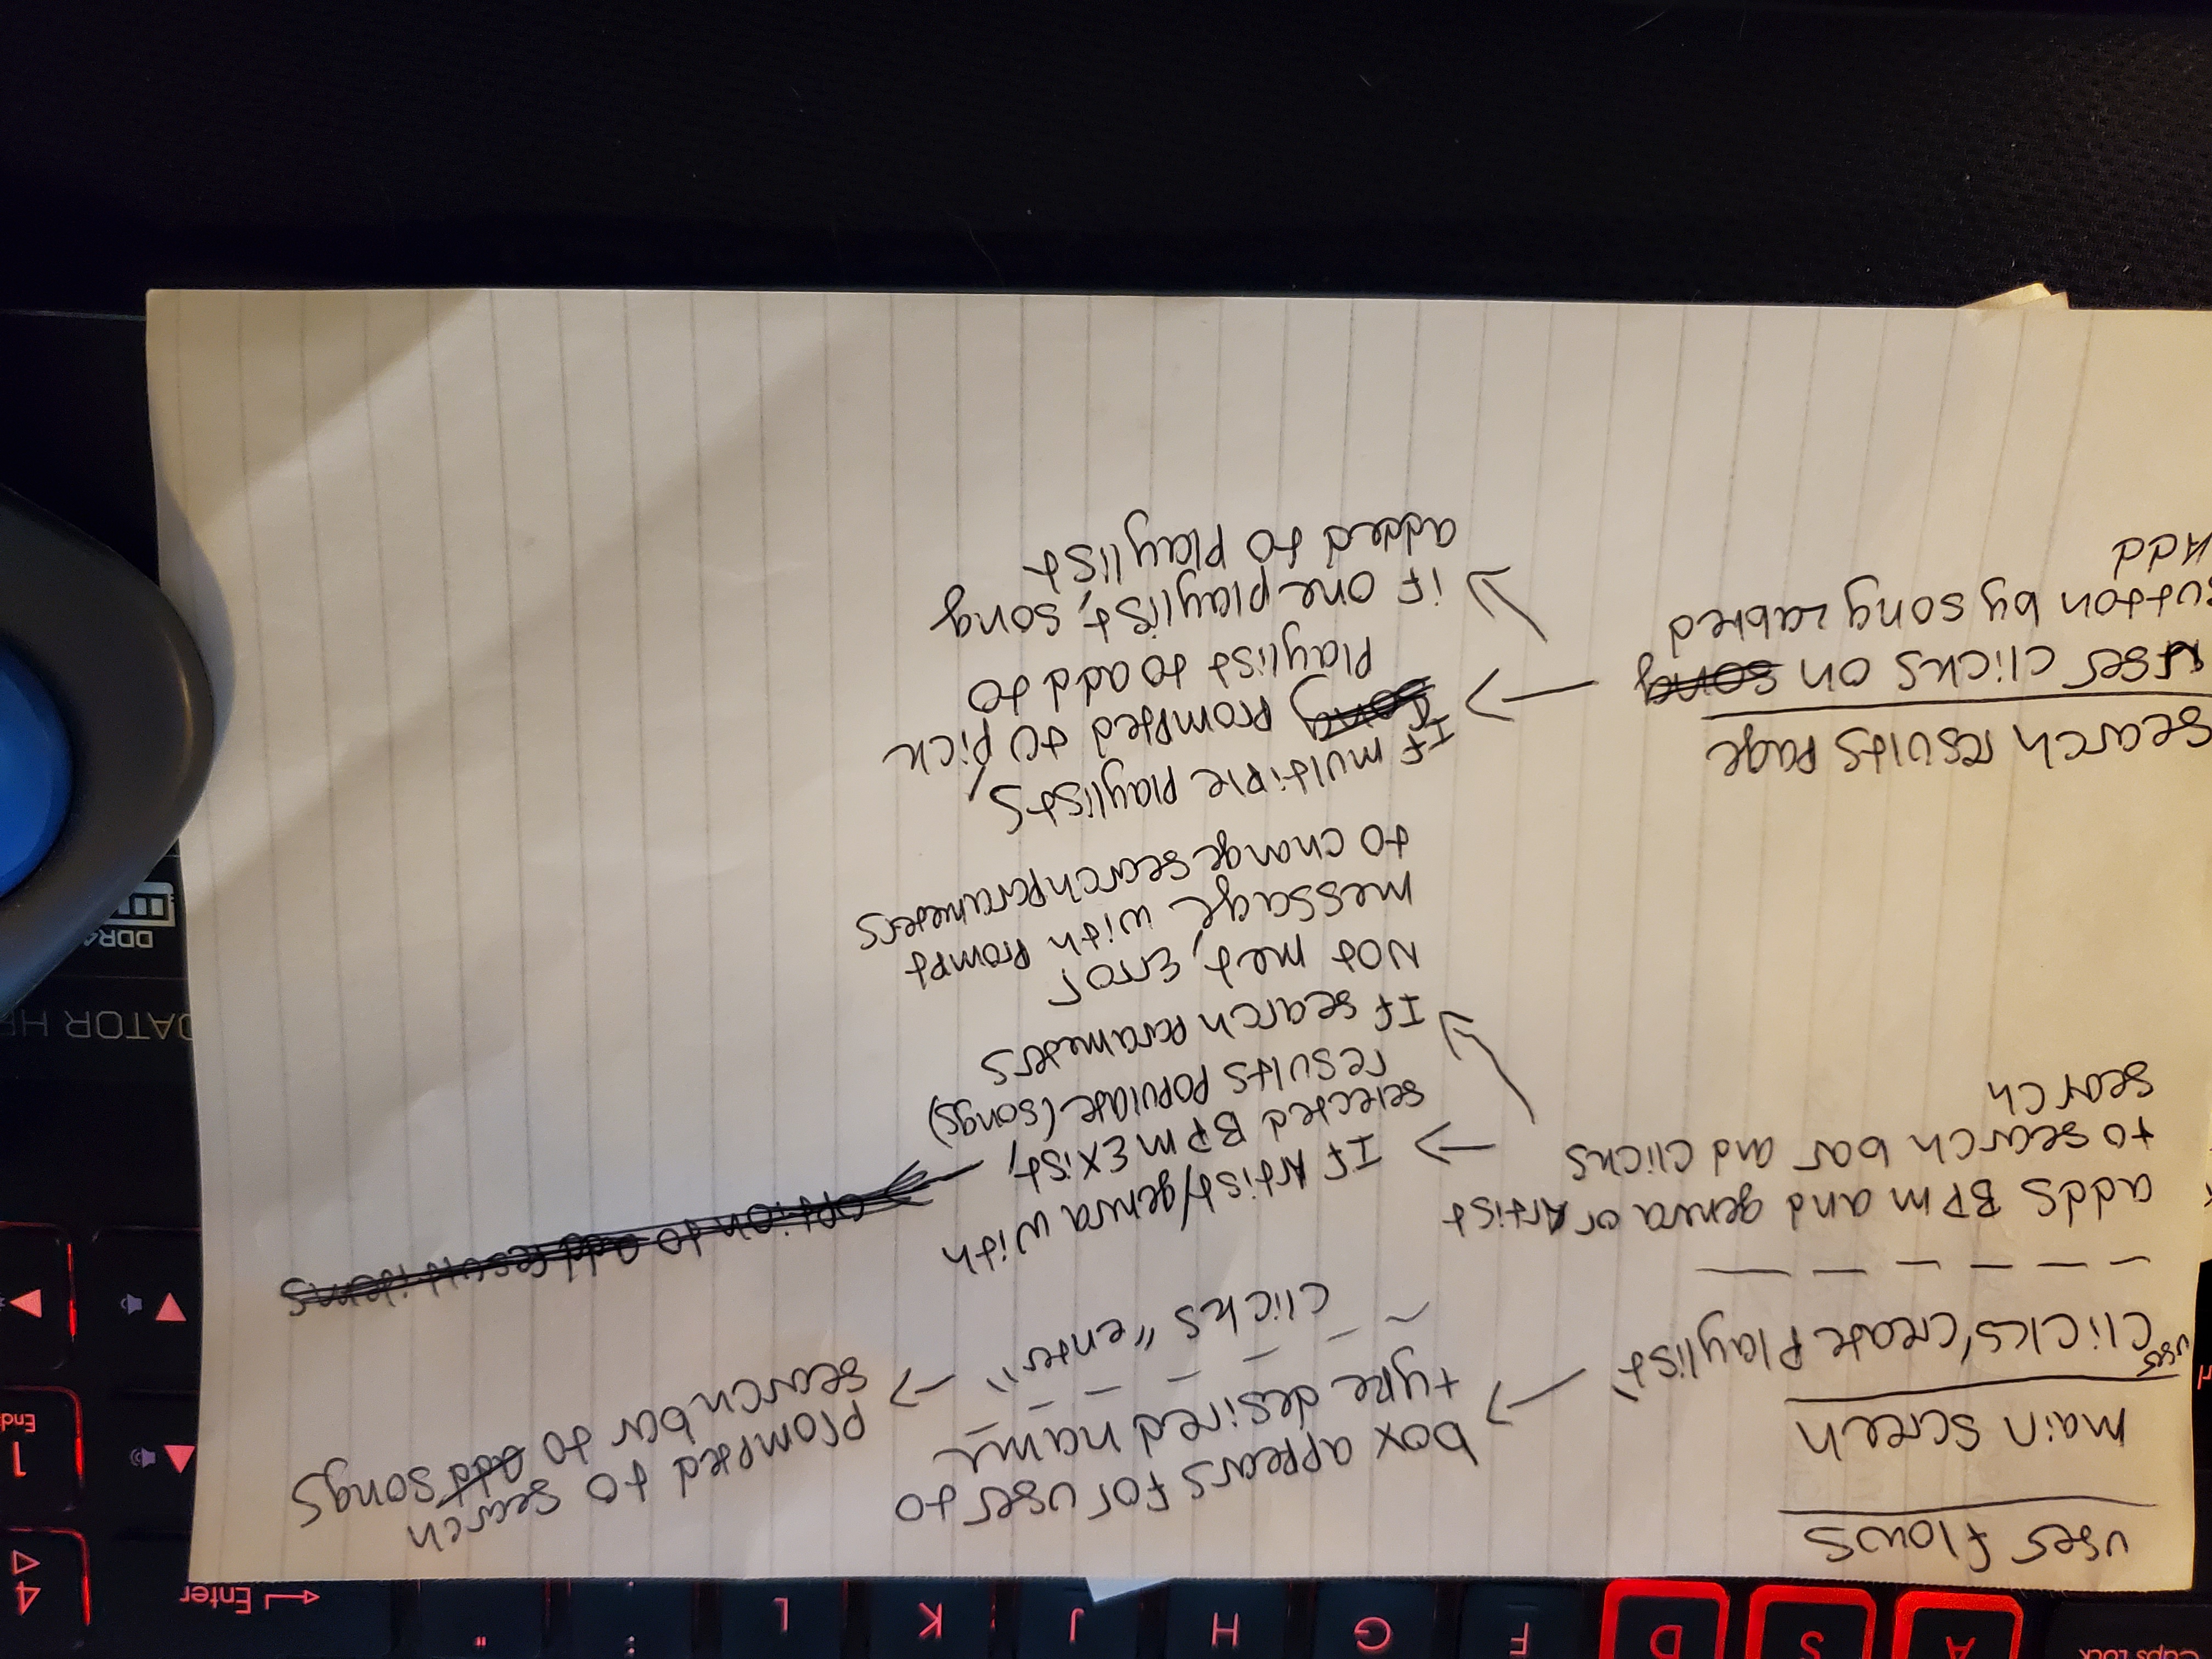 Caps Lock
A
S
D
F
G
H
J
K
L
:
;
"
Enter
4
1
End
user flows
main screen
user
clicks "create Playlist"
box appears for user to
type desired name
clicks "enter"
prompted to search
search bar to add songs
adds BPM and genra or Artist
to search bar and clicks
search
If Artist/genra with
selected BPM Exist,
results populate (songs)
option to add result items
If search parameters
Not met, Error
message with prompt
to change search parameters
search results page
user clicks on song
button by song Labled
Add
If multiple playlists,
song prompted to pick
Playlist to add to
if one playlist, song
added to Playlist
DATOR HE
DDR4